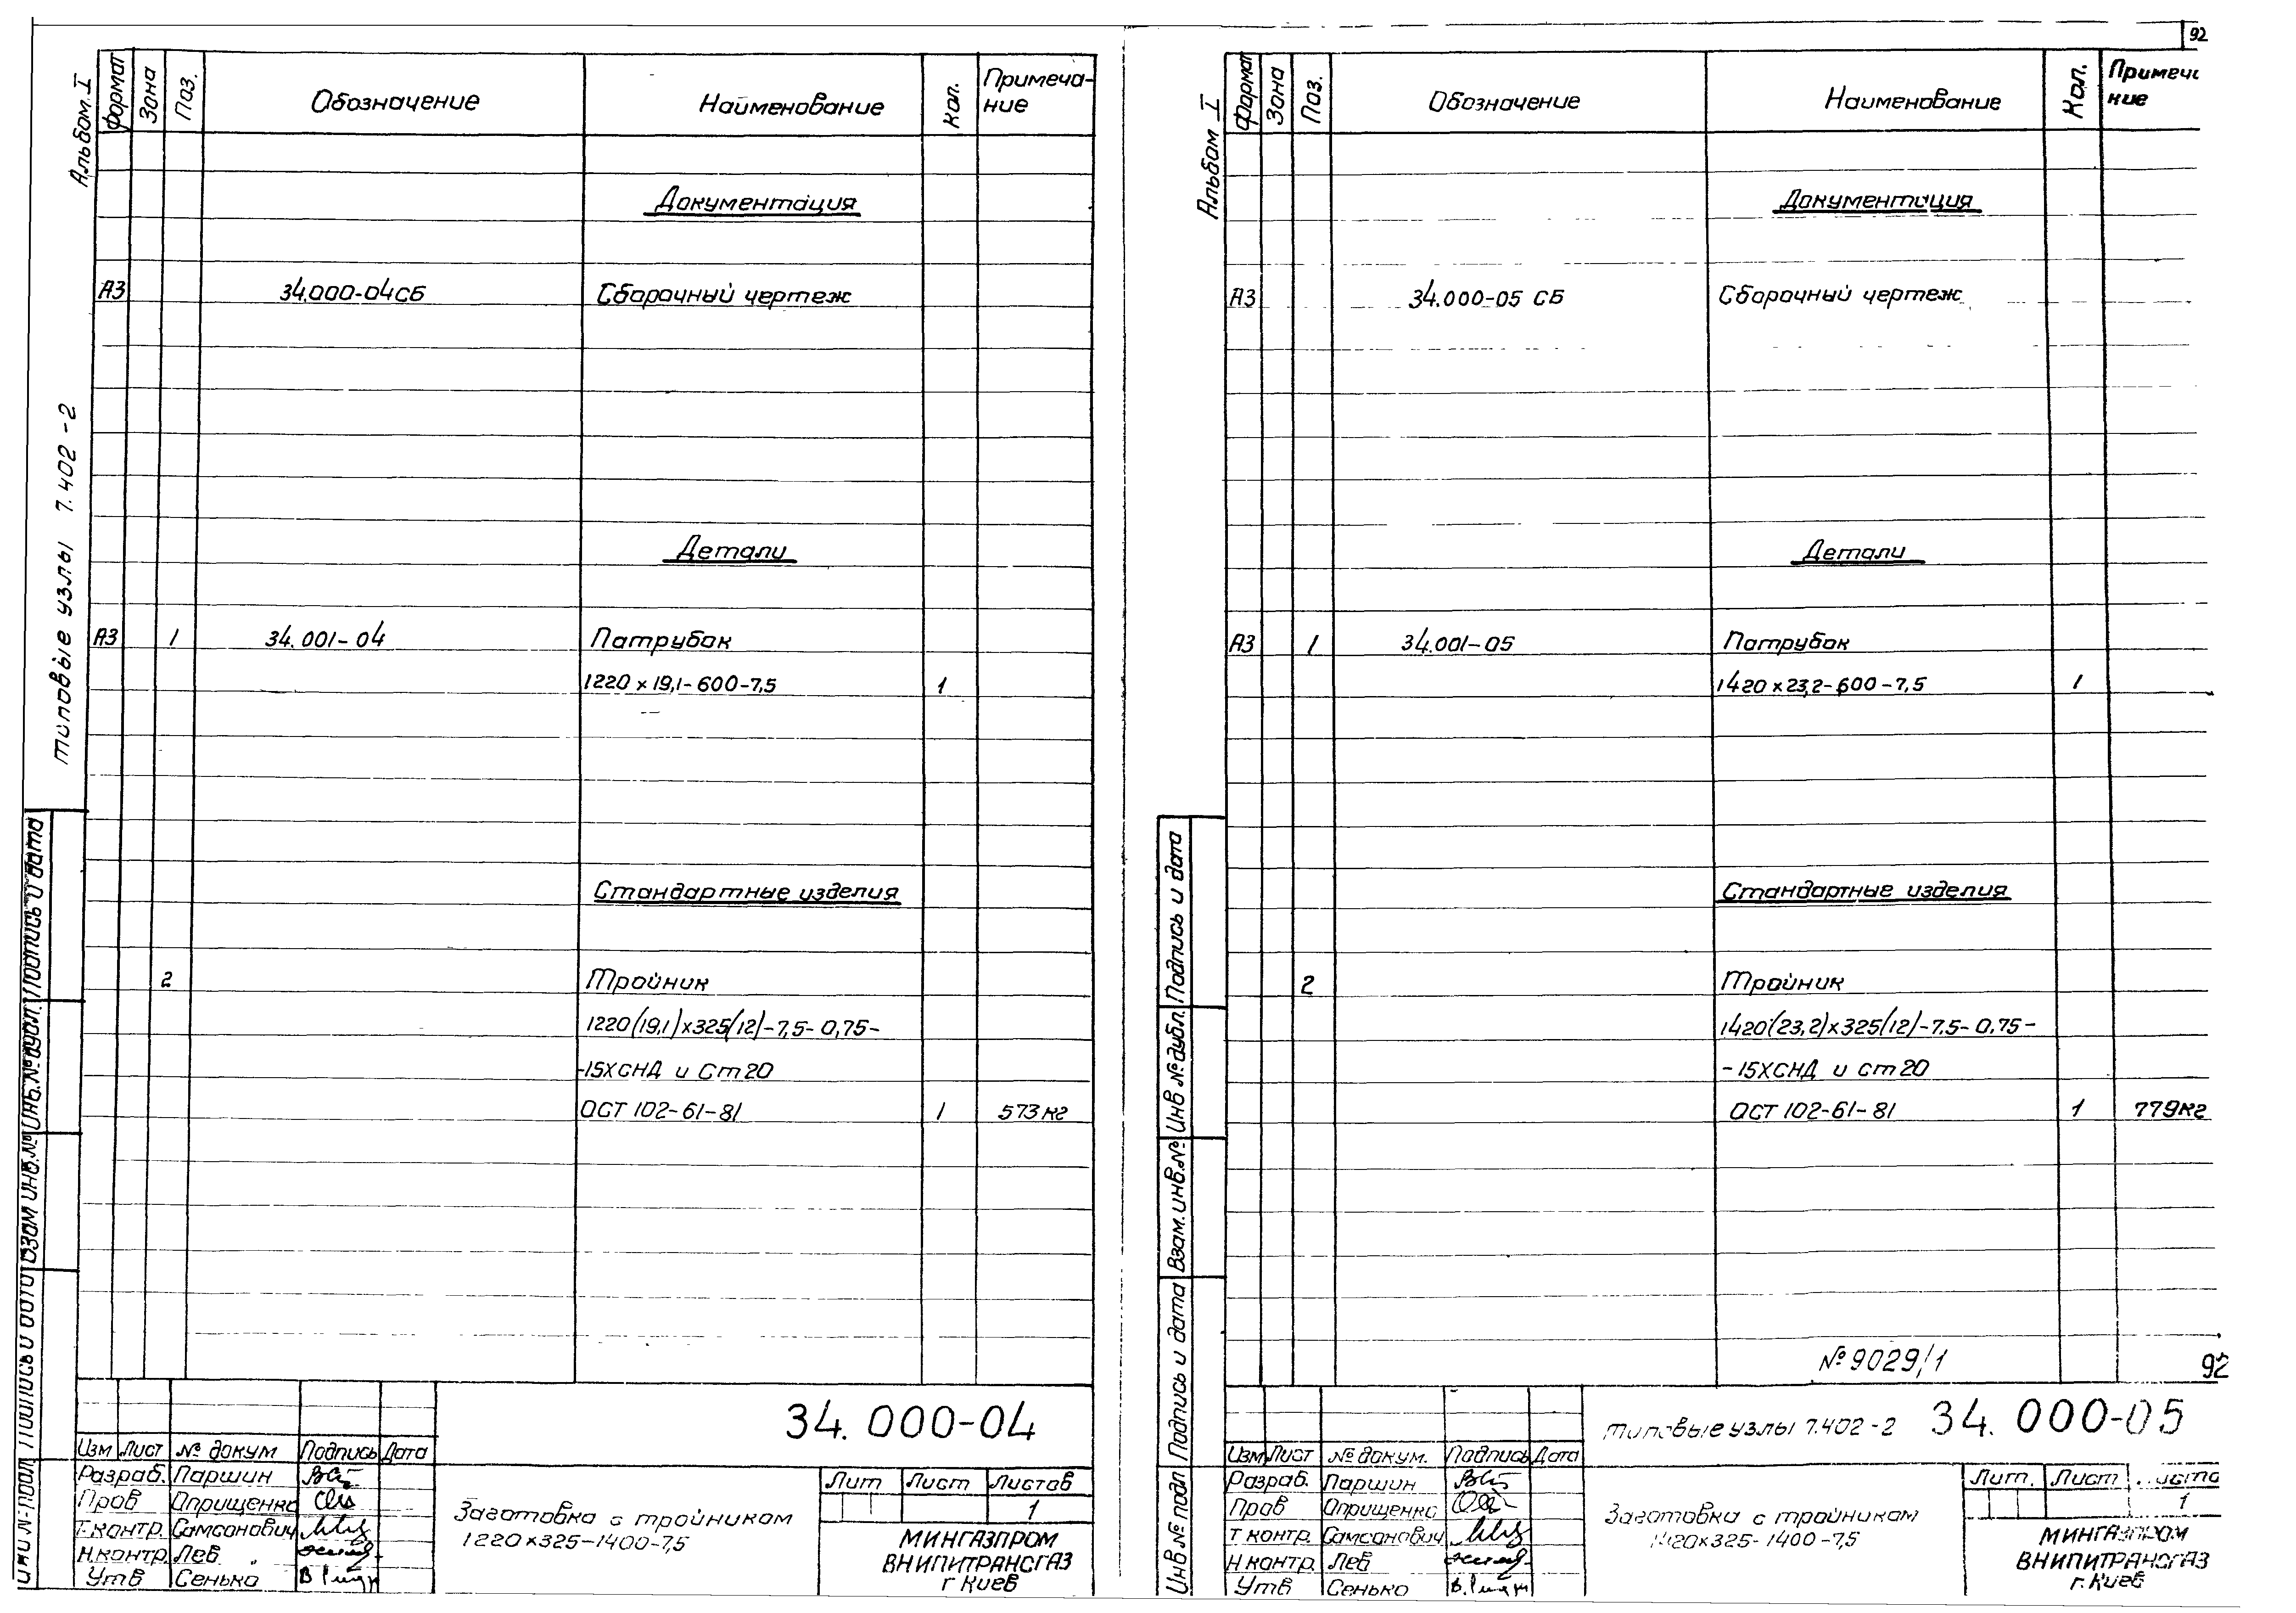 92
Альбом I
типовые узлы 7.402-2
Формат Зона Поз. Обозначение Наименование Кол. Примеча-
ние
Документация
А3 34.000-04СБ Сборочный чертеж
Детали
А3 1 34.001-04 Патрубок
1220×19,1-600-7,5 1
Стандартные изделия
2 Тройник
1220(19,1)×325(12)-7,5-0,75-
-15ХСНД и Ст20
ОСТ 102-61-81 1 573кг
Подпись и дата
Инв.№ дубл.
Взам инв.№
Подпись и дата
34.000-04
Изм Лист № докум Подпись Дата
Разраб. Паршин
Пров Оприщенко
Т.контр. Самсонович
Н.контр. Лев
Утв Сенько
Заготовка с тройником
1220×325-1400-7,5
Лит Лист Листов
1
МИНГАЗПРОМ
ВНИПИТРАНСГАЗ
г Киев
Альбом I
Формат Зона Поз. Обозначение Наименование Кол. Примеча
ние
Документация
А3 34.000-05 СБ Сборочный чертеж
Детали
А3 1 34.001-05 Патрубок
1420×23,2-600-7,5 1
Стандартные изделия
2 Тройник
1420(23,2)×325(12)-7,5-0,75-
-15ХСНД и ст20
ОСТ 102-61-81 1 779кг
Подпись и дата
Инв № дубл.
Взам.инв.№
Подпись и дата
Инв.№ подл
№9029/1
92
типовые узлы 7.402-2 34.000-05
Изм Лист № докум. Подпись Дата
Разраб. Паршин
Пров Оприщенко
Т контр. Самсонович
Н контр. Лев
Утв Сенько
Заготовка с тройником
1420×325-1400-7,5
Лит. Лист
1
МИНГАЗПРОМ
ВНИПИТРАНСГАЗ
г.Киев